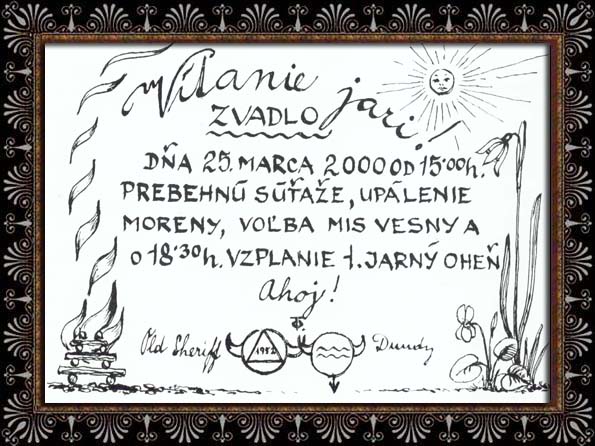 Vítanie jari!
ZVADLO
DŇA 25. MARCA 2000 OD 15.00h.
PREBEHNÚ SÚŤAŽE, UPÁLENIE
MORENY, VOĽBA MIS VESNY A
O 18.30h. VZPLANIE 1. JARNÝ OHEŇ
Ahoj!
Old Sheriff 1982 Dundy